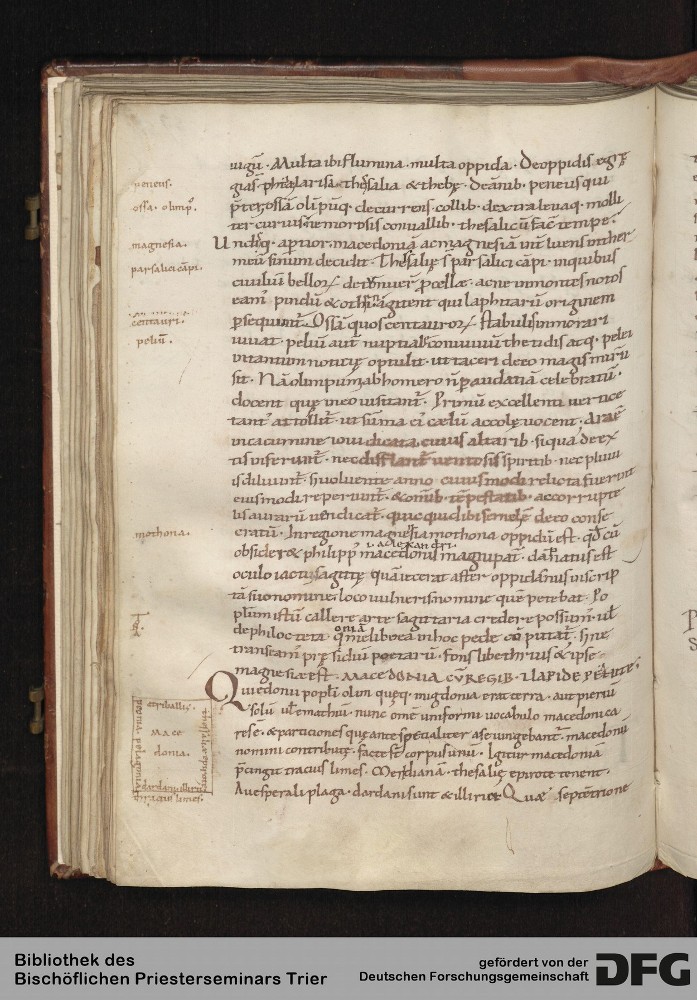 peneus.
ossa. olimp᷒.
magnesia.
parsalici cāpi.
centauri.
peliū.
mothona.
uigū. Multa ibi flumina. multa oppida. De oppidis
larisa. thesalia & thebę. De ānib. peneus qui
ossā olīpūq; decurrens. collib. dextra leuaq. molli
ter curuis nemorosis conuallib. thesalicū fac̄ tempe.
macedoniā ac magnesiā
meū sinum decidit. Thesalię s̄ parsalici cāpi. inquibus
ciuiliū bello℞ procellæ. acne inmontes notos
eam᷒ pindū & othrī agitent qui laphitarū originem
p̄sequunt̄. Ossā quos centauro℞ stabulis inmorari
iuuat. peliū aut̄ nuptiale conuiuiū thetidis atq. pelei
intantum notitię optulit. ut taceri de eo magis mirū
sit. Nā olimpum ab homero n̄ p audatiā celebratū.
docent quę ineo uisitant̄. Primū excellenti uertice
tant᷒ attollit̄. ut sūma ei᷒ cælū accolę uocent. Ara ē
incacumine ioui dicata. cuius altarib. siqua de ex
tis inferunt̄. nec difflant̄ uentosis spiritib. nec pluui
is diluunt̄. s; uoluente anno cuiusmodi relicta fuerint
eiusmodi reperiunt̄. & omīb. tēpestatib. accorrupte
lis aurarū uendicat̄. quic quid ibi semel ē deo conse
cratū. In regione magnesia mothona oppidū est. qd̄ cū
obsideret philipp᷒ macedonū magni pat̄. dāpnatus est
.i. alexandri.
oculo iactu sagittę quā iecerat aster oppidanus inscrip
tā suo nomine. loco uulneris nomine quē petebat. Po
plūm istū callere arte sagittaria credere possum᷒. ul̄
de philocteta. qm̄ melibæa inhoc pede cō putat̄. S; ne
transeam᷒ pręsidiū poetarū. fons libethrius & ipse
magnesiæ est. MACEDONIA CV̄ REGIB. & LAPIDE PEANITE.
Qui edonii popli olim quęq. migdonia erat terra. aut pieriū
solū ul̄ emathiū. nunc omē uniformi uocabulo macedonica
res ē. & partitiones quę ante specialiter a se iungebant̄. macedonū
nomini contributę. factę st̄ corpus unū. Igitur macedoniā
p̄cingit tracius limes. Meridianā. thesalię epirotę tenent.
A uesperali plaga. dardani sunt & illirici Quæ septētrione
triballis.
Mace
donia.
peonia. pelagonia
thesaliæ epirotæ
dardani illirii
thracius limes.
Bibliothek des
Bischöflichen Priesterseminars Trier
gefördert von der
Deutschen Forschungsgemeinschaft
DFG